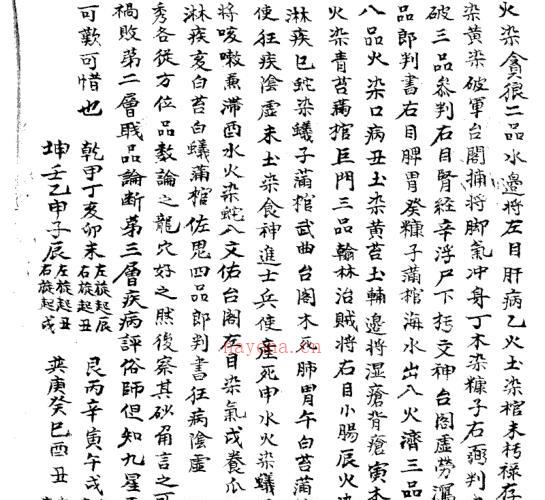 火染貪狼二品水邊將左目肝病乙火土染棺未朽祿存
染黃染破軍台閣捕將脚氣冲身丁木染糠子右弼判
破三品叅判右目腎經辛浮尸下朽文神台閣虛勞濕
品郎判書右目脾胃癸糠子蒲棺海水出八火濟三品
八品火染口病丑土染黃苔土輔邊將湿瘡背瘡寅木
火染青苔蒲棺巨門三品翰林治賊將右目小腸辰火
淋疾巳蛇染蟻子蒲棺武曲台閣木死肺胃午白苔蒲
使狂疾陰虛未土染食神進士兵使産死申水火染蟻
將咳嗽㾾滞酉水火染蛇八文佑台閣左目染氣戌養瓜
淋疾亥白苔白蟻蒲棺佐鬼四品郎判書狂病陰虛
秀各從方位品数論之龍穴好之然後察其砂角言之可
禍敗第二層戰品論断第三層疾病評俗師但知九星
可歎可惜也
乾甲丁亥卯未 左旋起辰 右旋起丑
艮丙辛寅午戌
坤壬乙申子辰 左旋起丑 右旋起戌
巽庚癸巳酉丑
hayona.cn